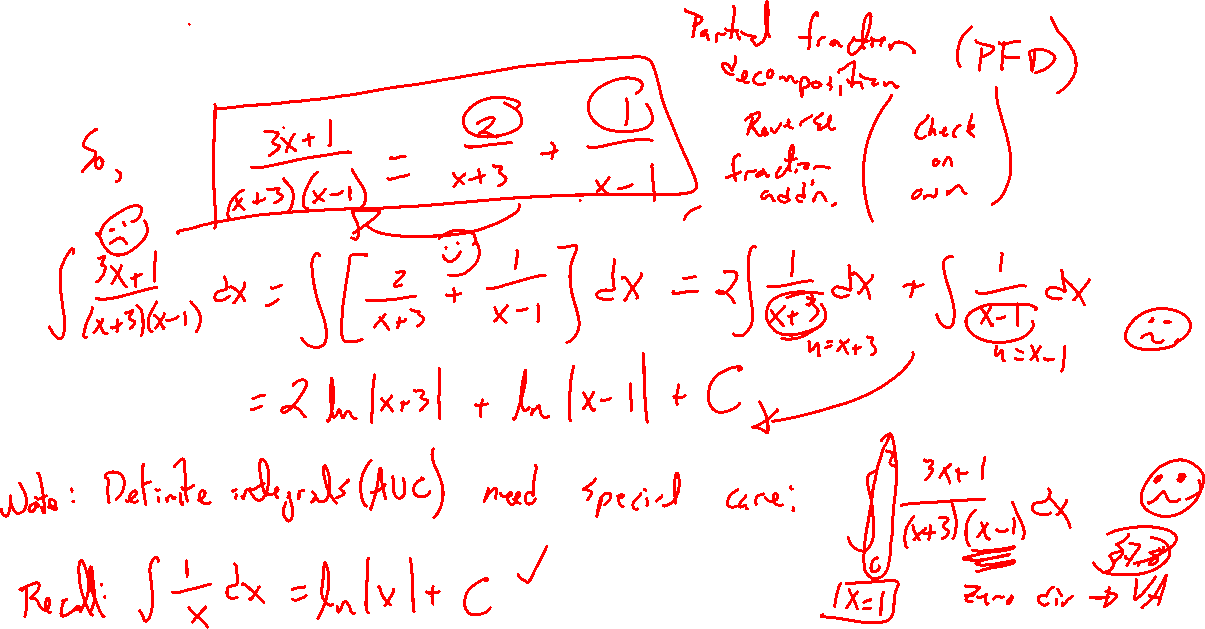 Partial fraction decomposition (PFD)
So, (3x+1)/((x+3)(x-1)) = 2/(x+3) + 1/(x-1)
Reverse fraction add'n. (Check on own)
∫ (3x+1)/((x+3)(x-1)) dx = ∫ [2/(x+3) + 1/(x-1)] dx = 2∫ 1/(x+3) dx + ∫ 1/(x-1) dx
u=x+3 u=x-1
= 2 ln |x+3| + ln |x-1| + C
Note: Definite integrals (AUC) need special care:
∫ (3x+1)/((x+3)(x-1)) dx
x=1 Zero div → VA
Recall: ∫ 1/x dx = ln|x| + C ✓